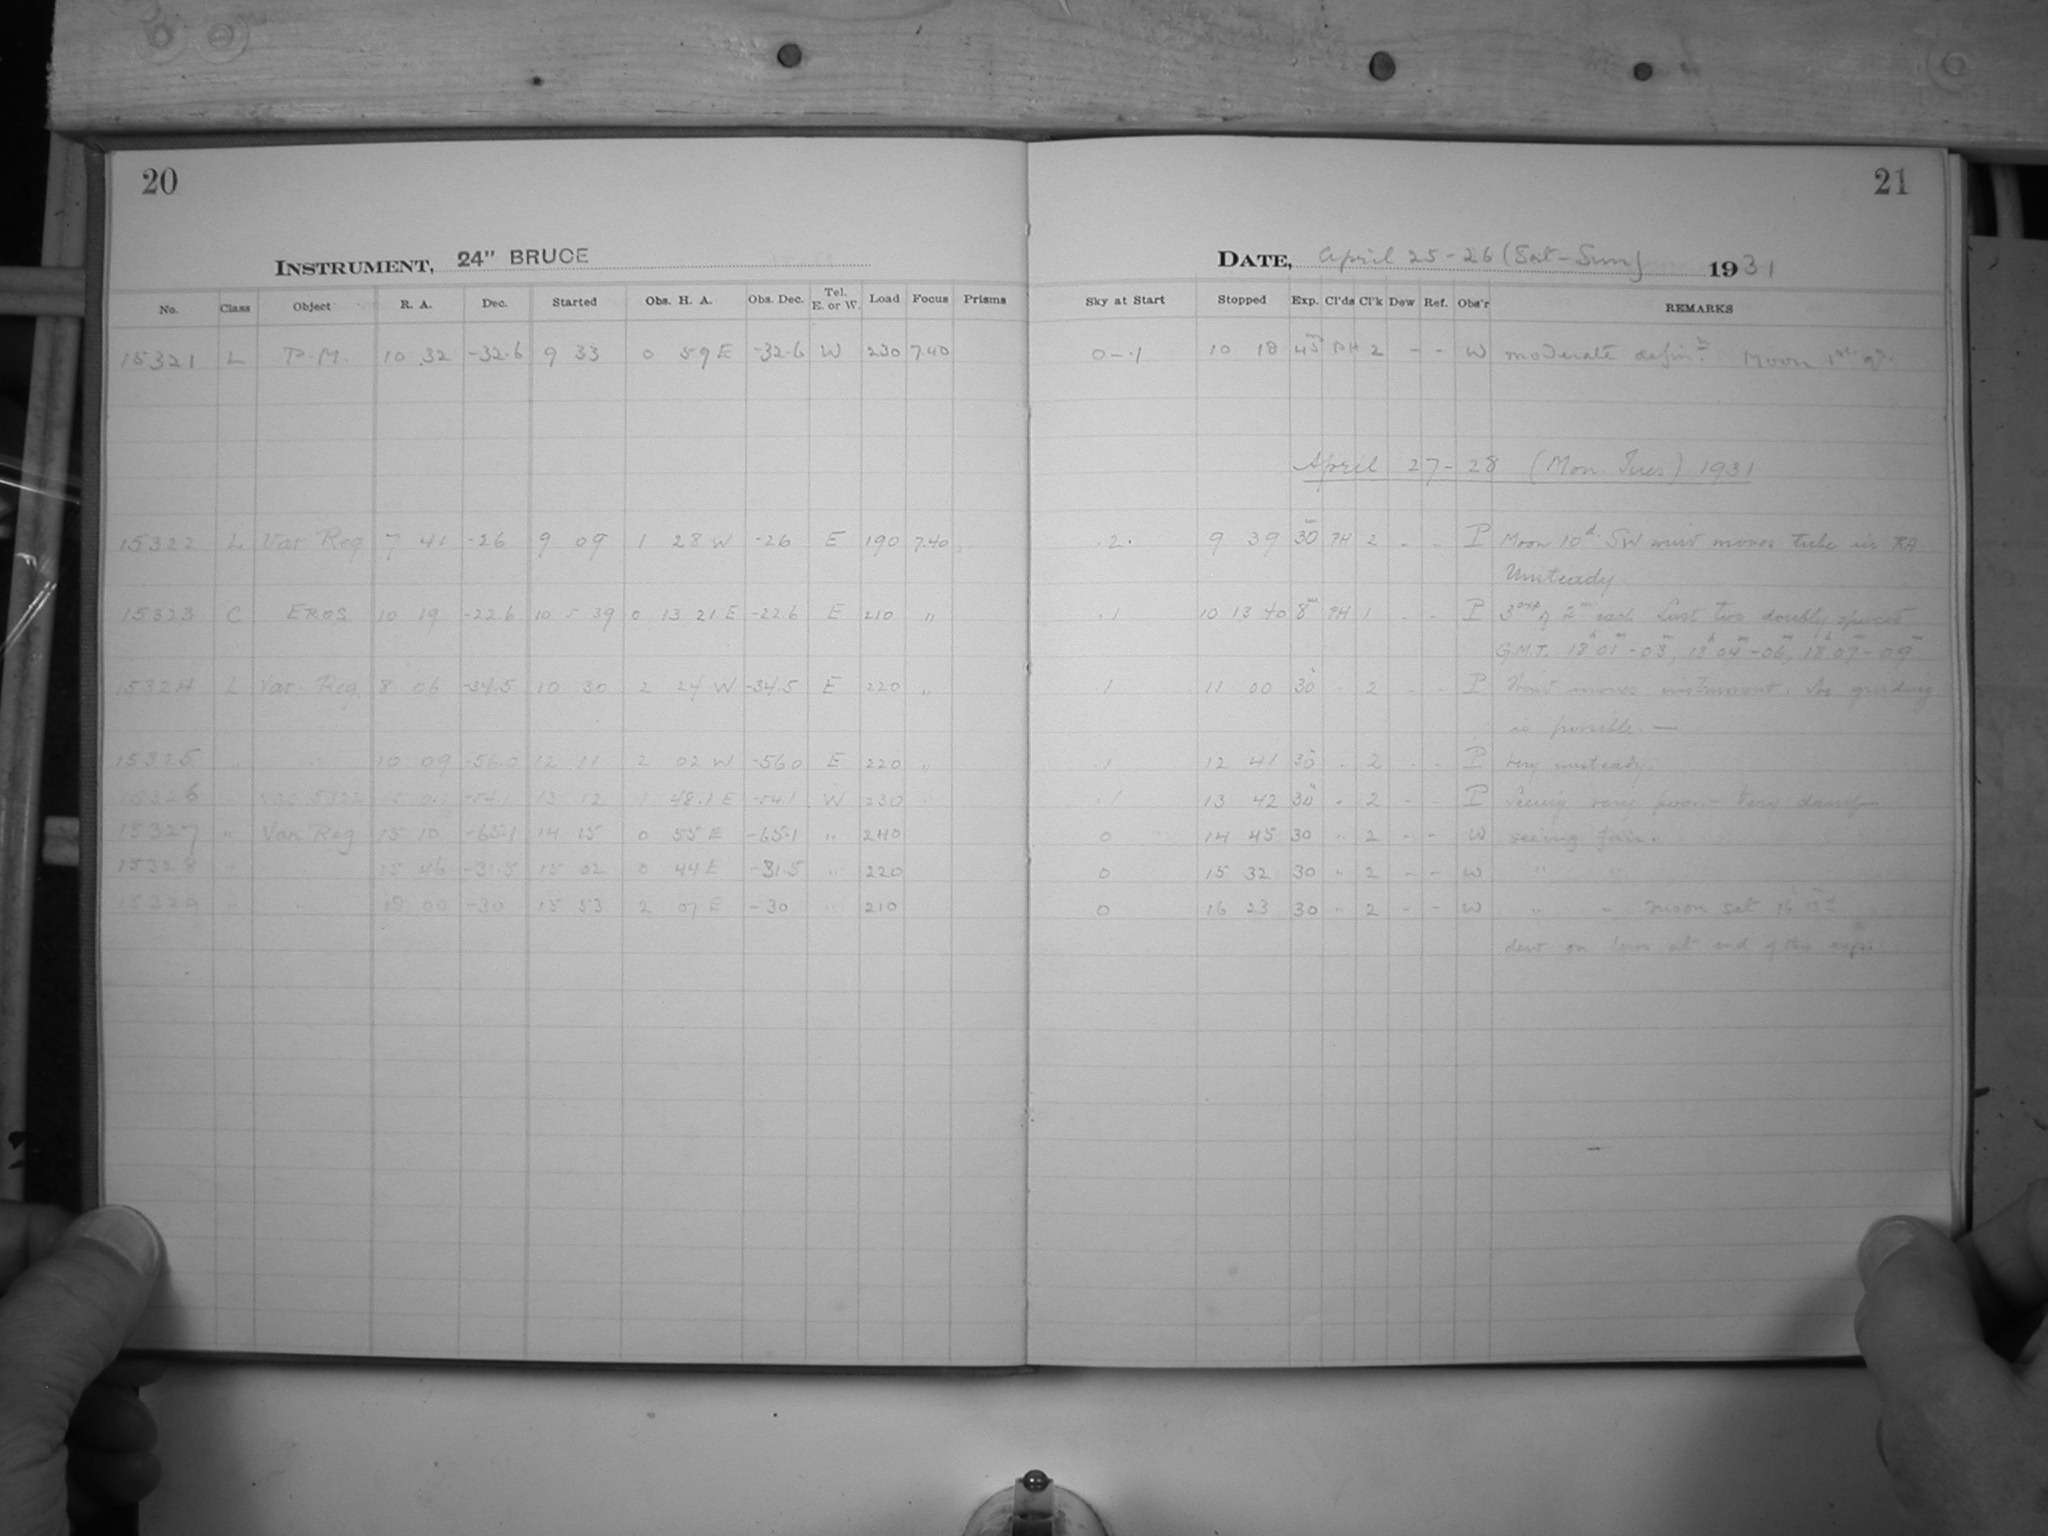 20
21
INSTRUMENT, 24" BRUCE
DATE, April 25-26 (Sat-Sun) 1931
No. Class Object R. A. Dec. Started Obs. H. A. Obs. Dec. Tel. E. or W. Load Focus Prisms Sky at Start Stopped Exp. Cl'ds Cl'k Dew Ref. Obs'r REMARKS
15321 L P.M. 10 32 -32.6 9 33 0 59 E -32.6 W 230 7.40 0-.1 10 18 45m PH 2 - - W moderate defin.n Moon 1st qr.
April 27-28 (Mon-Tues) 1931
15322 L Var Reg 7 41 -26 9 09 1 28 W -26 E 190 7.40 .2. 9 39 30m PH 2 - - P Moon 10d. SW wind moves tube in RA.
Unsteady
15323 C EROS 10 19 -22.6 10 5 39 0 13 21 E -22.6 E 210 " .1 10 13 40 8m PH 1 - - P 3 exp of 2m each Last two doubly spaced
G.M.T. 18h 01m-03m, 18h 04m-06m, 18h 07m-09m
15324 L Var Reg 8 06 -34.5 10 30 2 24 W -34.5 E 220 " .1 11 00 30 " 2 - - P Wind moves instrument. No guiding
is possible. —
15325 " " 10 09 -56.0 12 11 2 02 W -56.0 E 220 " .1 12 41 30 " 2 - - P Very unsteady.
15326 " -54.1 13 12 1 48.1 E -54.1 W 230 " .1 13 42 30 " 2 - - P Seeing very poor - Very damp
15327 " Var Reg 15 10 -65.1 14 15 0 55 E -65.1 " 240 0 14 45 30 " 2 - - W seeing fair.
15328 " " 15 46 -31.5 15 02 0 44 E -31.5 " 220 0 15 32 30 " 2 - - W " "
15329 " " 18 00 -30 15 53 2 07 E -30 " 210 0 16 23 30 " 2 - - W " " moon set 16h 15m
dew on lens at end of this exp.